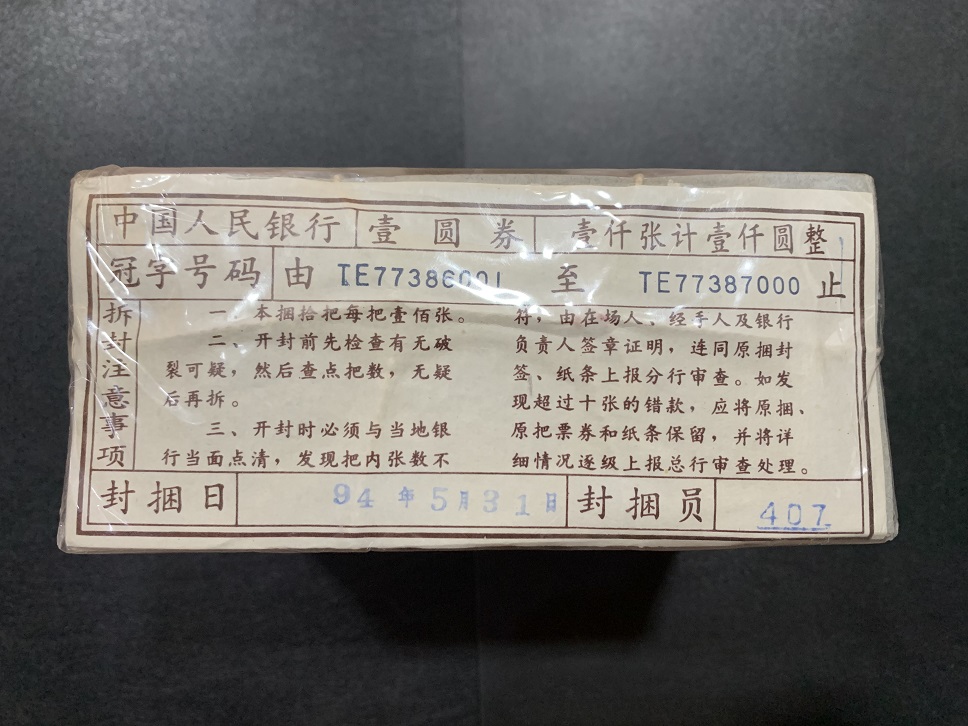 中国人民银行 壹圆券 壹仟张计壹仟圆整
冠字号码 由 TE77386001 至 TE77387000 止
拆封注意事项
一、本捆拾把每把壹佰张。
二、开封前先检查有无破
裂可疑，然后查点把数，无疑
后再拆。
三、开封时必须与当地银
行当面点清，发现把内张数不
符，由在场人、经手人及银行
负责人签章证明，连同原捆封
签、纸条上报分行审查。如发
现超过十张的错款，应将原捆、
原把票券和纸条保留，并将详
细情况逐级上报总行审查处理。
封捆日 94年5月31日 封捆员 407